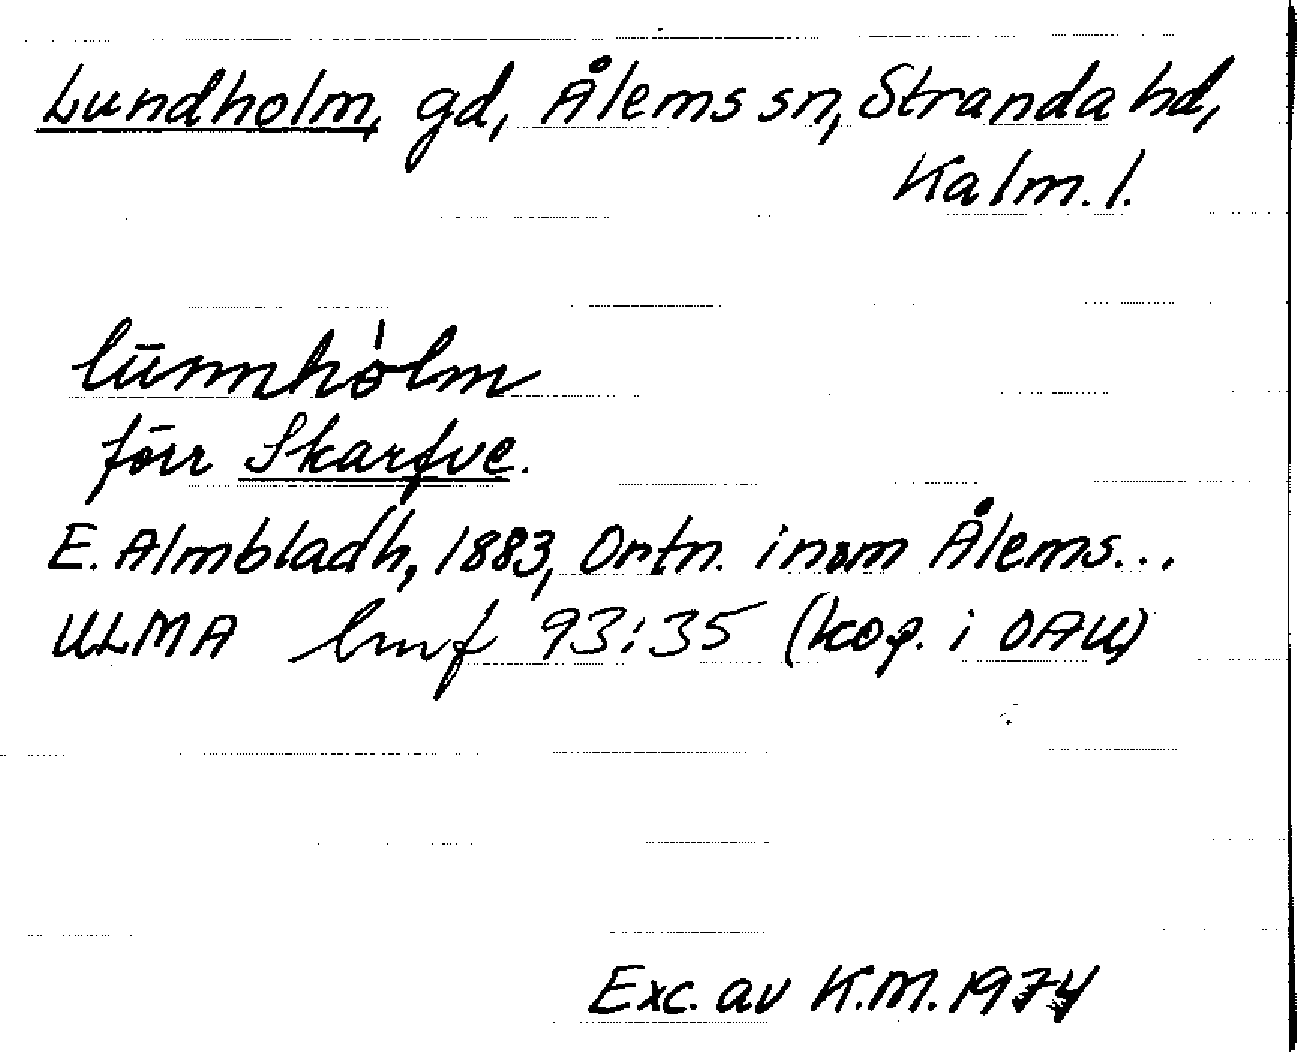 Lundholm, gd, Ålems sn, Stranda hd,
Kalm. l.
lūnnhòlm
förr Skarfve.
E. Almbladh, 1883, Ortn. inom Ålems...
ULMA hmf 93:35 (kop. i OAU)
Exc. av K.M. 1974